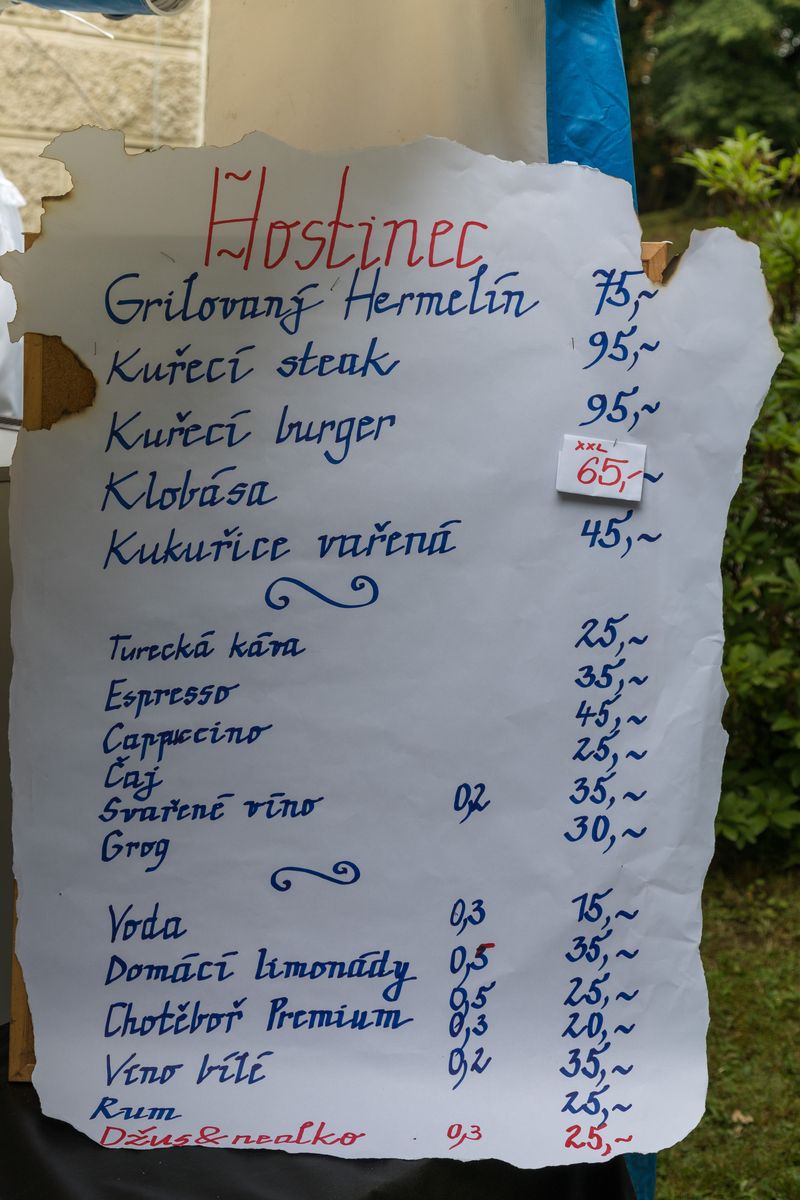 Hostinec
Grilovaný Hermelín 75,~
Kuřecí steak 95,~
Kuřecí burger 95,~
XXL
Klobása 65,-~
Kukuřice vařená 45,~
Turecká káva 25,~
Espresso 35,~
Cappuccino 45,~
Čaj 25,~
Svařené víno 0,2 35,~
Grog 30,~
Voda 0,3 15,~
Domácí limonády 0,5 35,~
Chotěboř Premium 0,5 25,~
0,3 20,~
Víno bílé 0,2 35,~
Rum 25,~
Džus & nealko 0,3 25,~